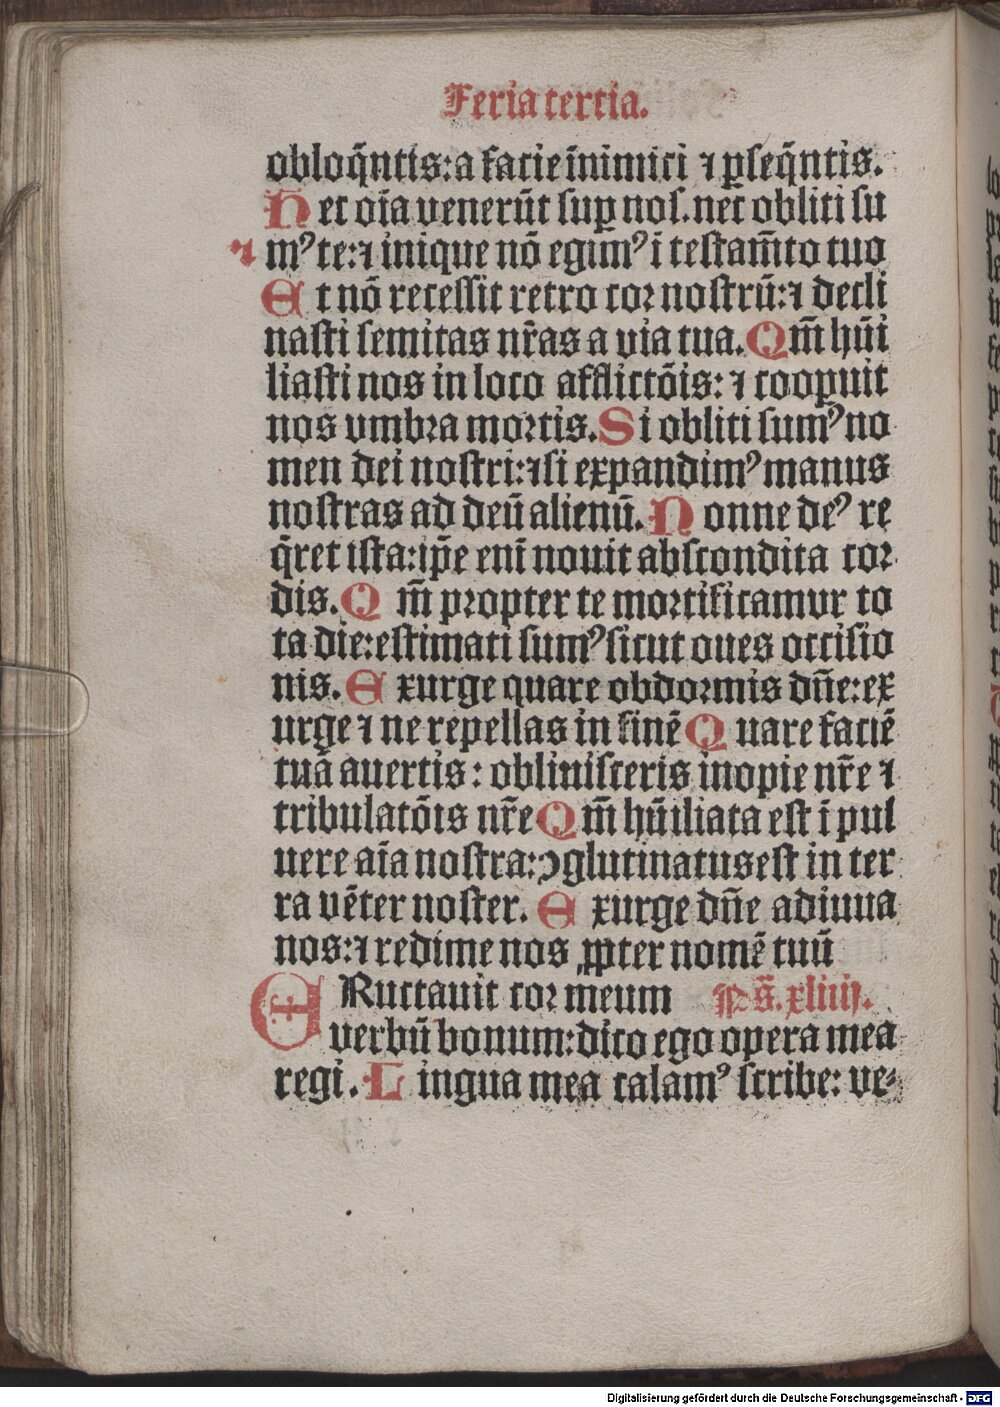 Feria tertia.
obloq̄ntis: a facie īnimici ⁊ ꝑseq̄ntis.
Hec oīa venerūt suꝑ nos. nec obliti su
⁊ mꝰ te: ⁊ inique nō egimꝰ ī testam̄to tuo
Et nō recessit retro cor nostrū: ⁊ decli
nasti semitas nr̄as a via tua. Qm̄ hūi
liasti nos in loco afflictōis: ⁊ cooꝑuit
nos vmbra mortis. Si obliti sumꝰ no
men dei nostri: ⁊ si expandimꝰ manus
nostras ad deū alienū. Nonne deꝰ re
q̄ret ista: ip̄e enī nouit abscondita cor
dis. Qm̄ propter te mortificamur to
ta die: estimati sumꝰ sicut oues occisio
nis. Exurge quare obdormis dn̄e: ex
urge ⁊ ne repellas in finē Quare faciē
tuā auertis: obliuisceris inopie nr̄e ⁊
tribulatōis nr̄e Qm̄ hūiliata est ī pul
uere aīa nostra: ꝯglutinatus est in ter
ra vēter noster. Exurge dn̄e adiuua
nos: ⁊ redime nos ꝓpter nomē tuū
ERuctauit cor meum ps̄. xliiij.
verbū bonum: dico ego opera mea
regi. Lingua mea calamꝰ scribe: ve⸗
Digitalisierung gefördert durch die Deutsche Forschungsgemeinschaft - DFG